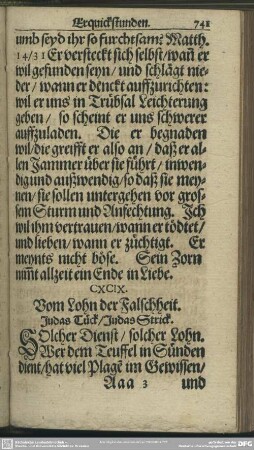 Erquickstunden. 741
umb seyd ihr so furchtsam? Matth.
14/31 Er versteckt sich selbst/wañ er
wil gefunden seyn/ und schlägt nie-
der/ wann er denckt auffzurichten:
wil er uns in Trübsal Leichterung
geben/ so scheint er uns schwerer
auffzuladen. Die er begnaden
wil/die greifft er also an/ daß er al-
len Jammer über sie führt/ inwen-
dig und außwendig/so daß sie mey-
nen/ sie sollen untergehen vor gros-
sem Sturm und Anfechtung. Ich
wil ihm vertrauen/wann er tödtet/
und lieben/ wann er züchtigt. Er
meynts nicht böse. Sein Zorn
nim̃t allzeit ein Ende in Liebe.
CXCIX.
Vom Lohn der Falschheit.
Judas Tück/Judas Strick.
SOlcher Dienst/ solcher Lohn.
Wer dem Teuffel in Sünden
dient/hat viel Plage im Gewissen/
Aaa 3 und